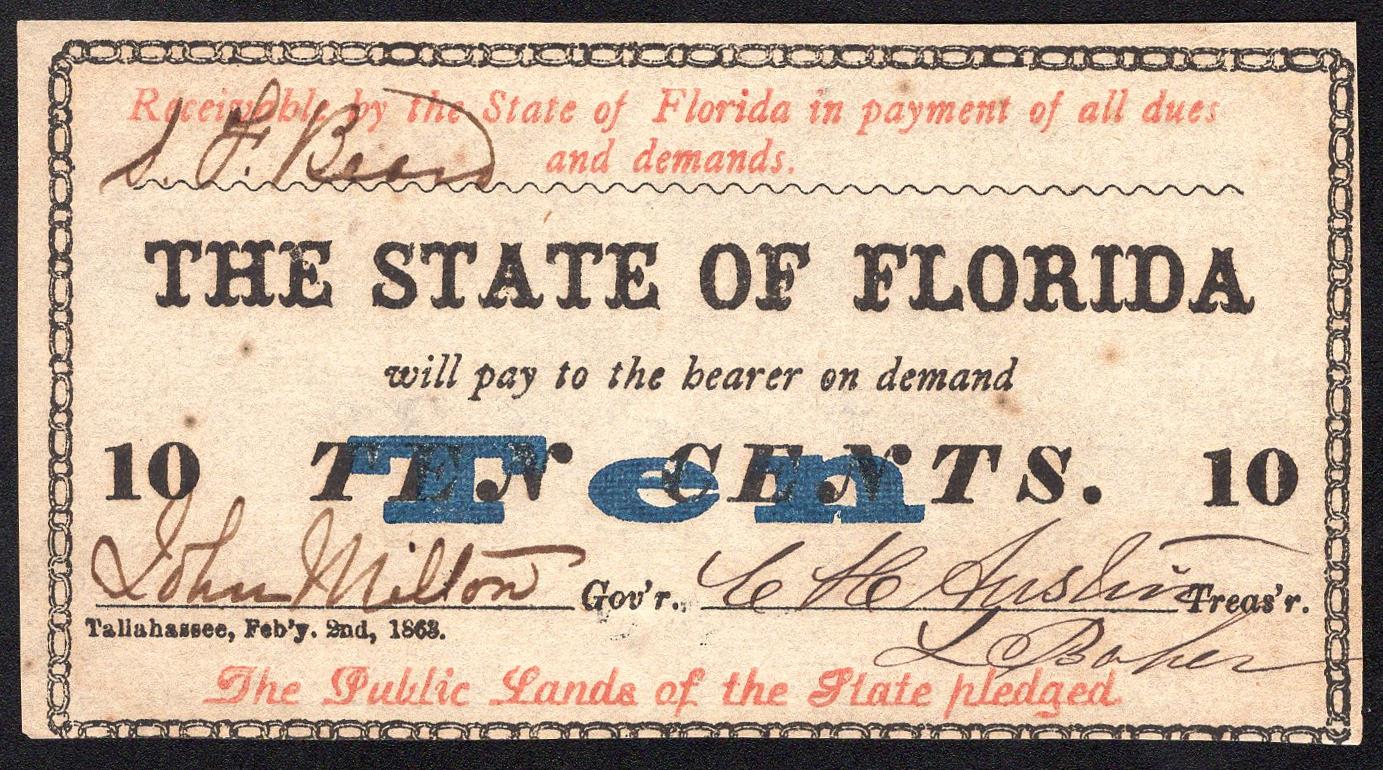 Receivable by the State of Florida in payment of all dues
and demands.
S. F. Beard
THE STATE OF FLORIDA
will pay to the bearer on demand
10 TEN CENTS. 10
Ten
John Milton Gov'r. C H Austin Treas'r.
Tallahassee, Feb'y. 2nd, 1863.
L Baker
The Public Lands of the State pledged